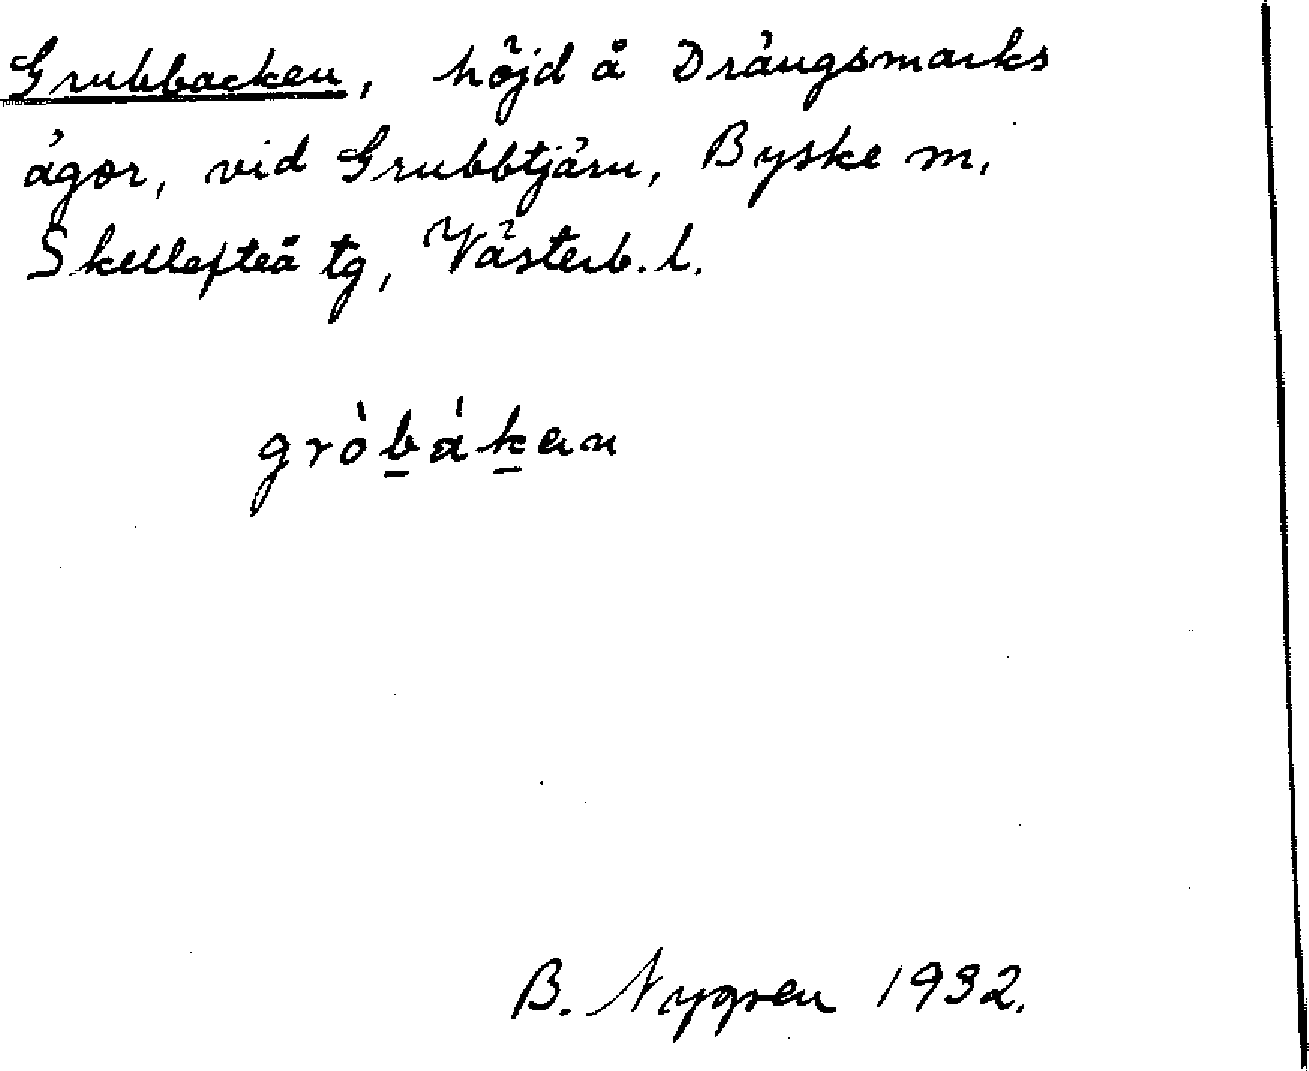 Grubbacken, höjd å Drängsmarks
ägor, vid Grubbtjärn, Byske sn,
Skellefteå tg, Västerb. l.
gròbákan
B. Nygren 1932.